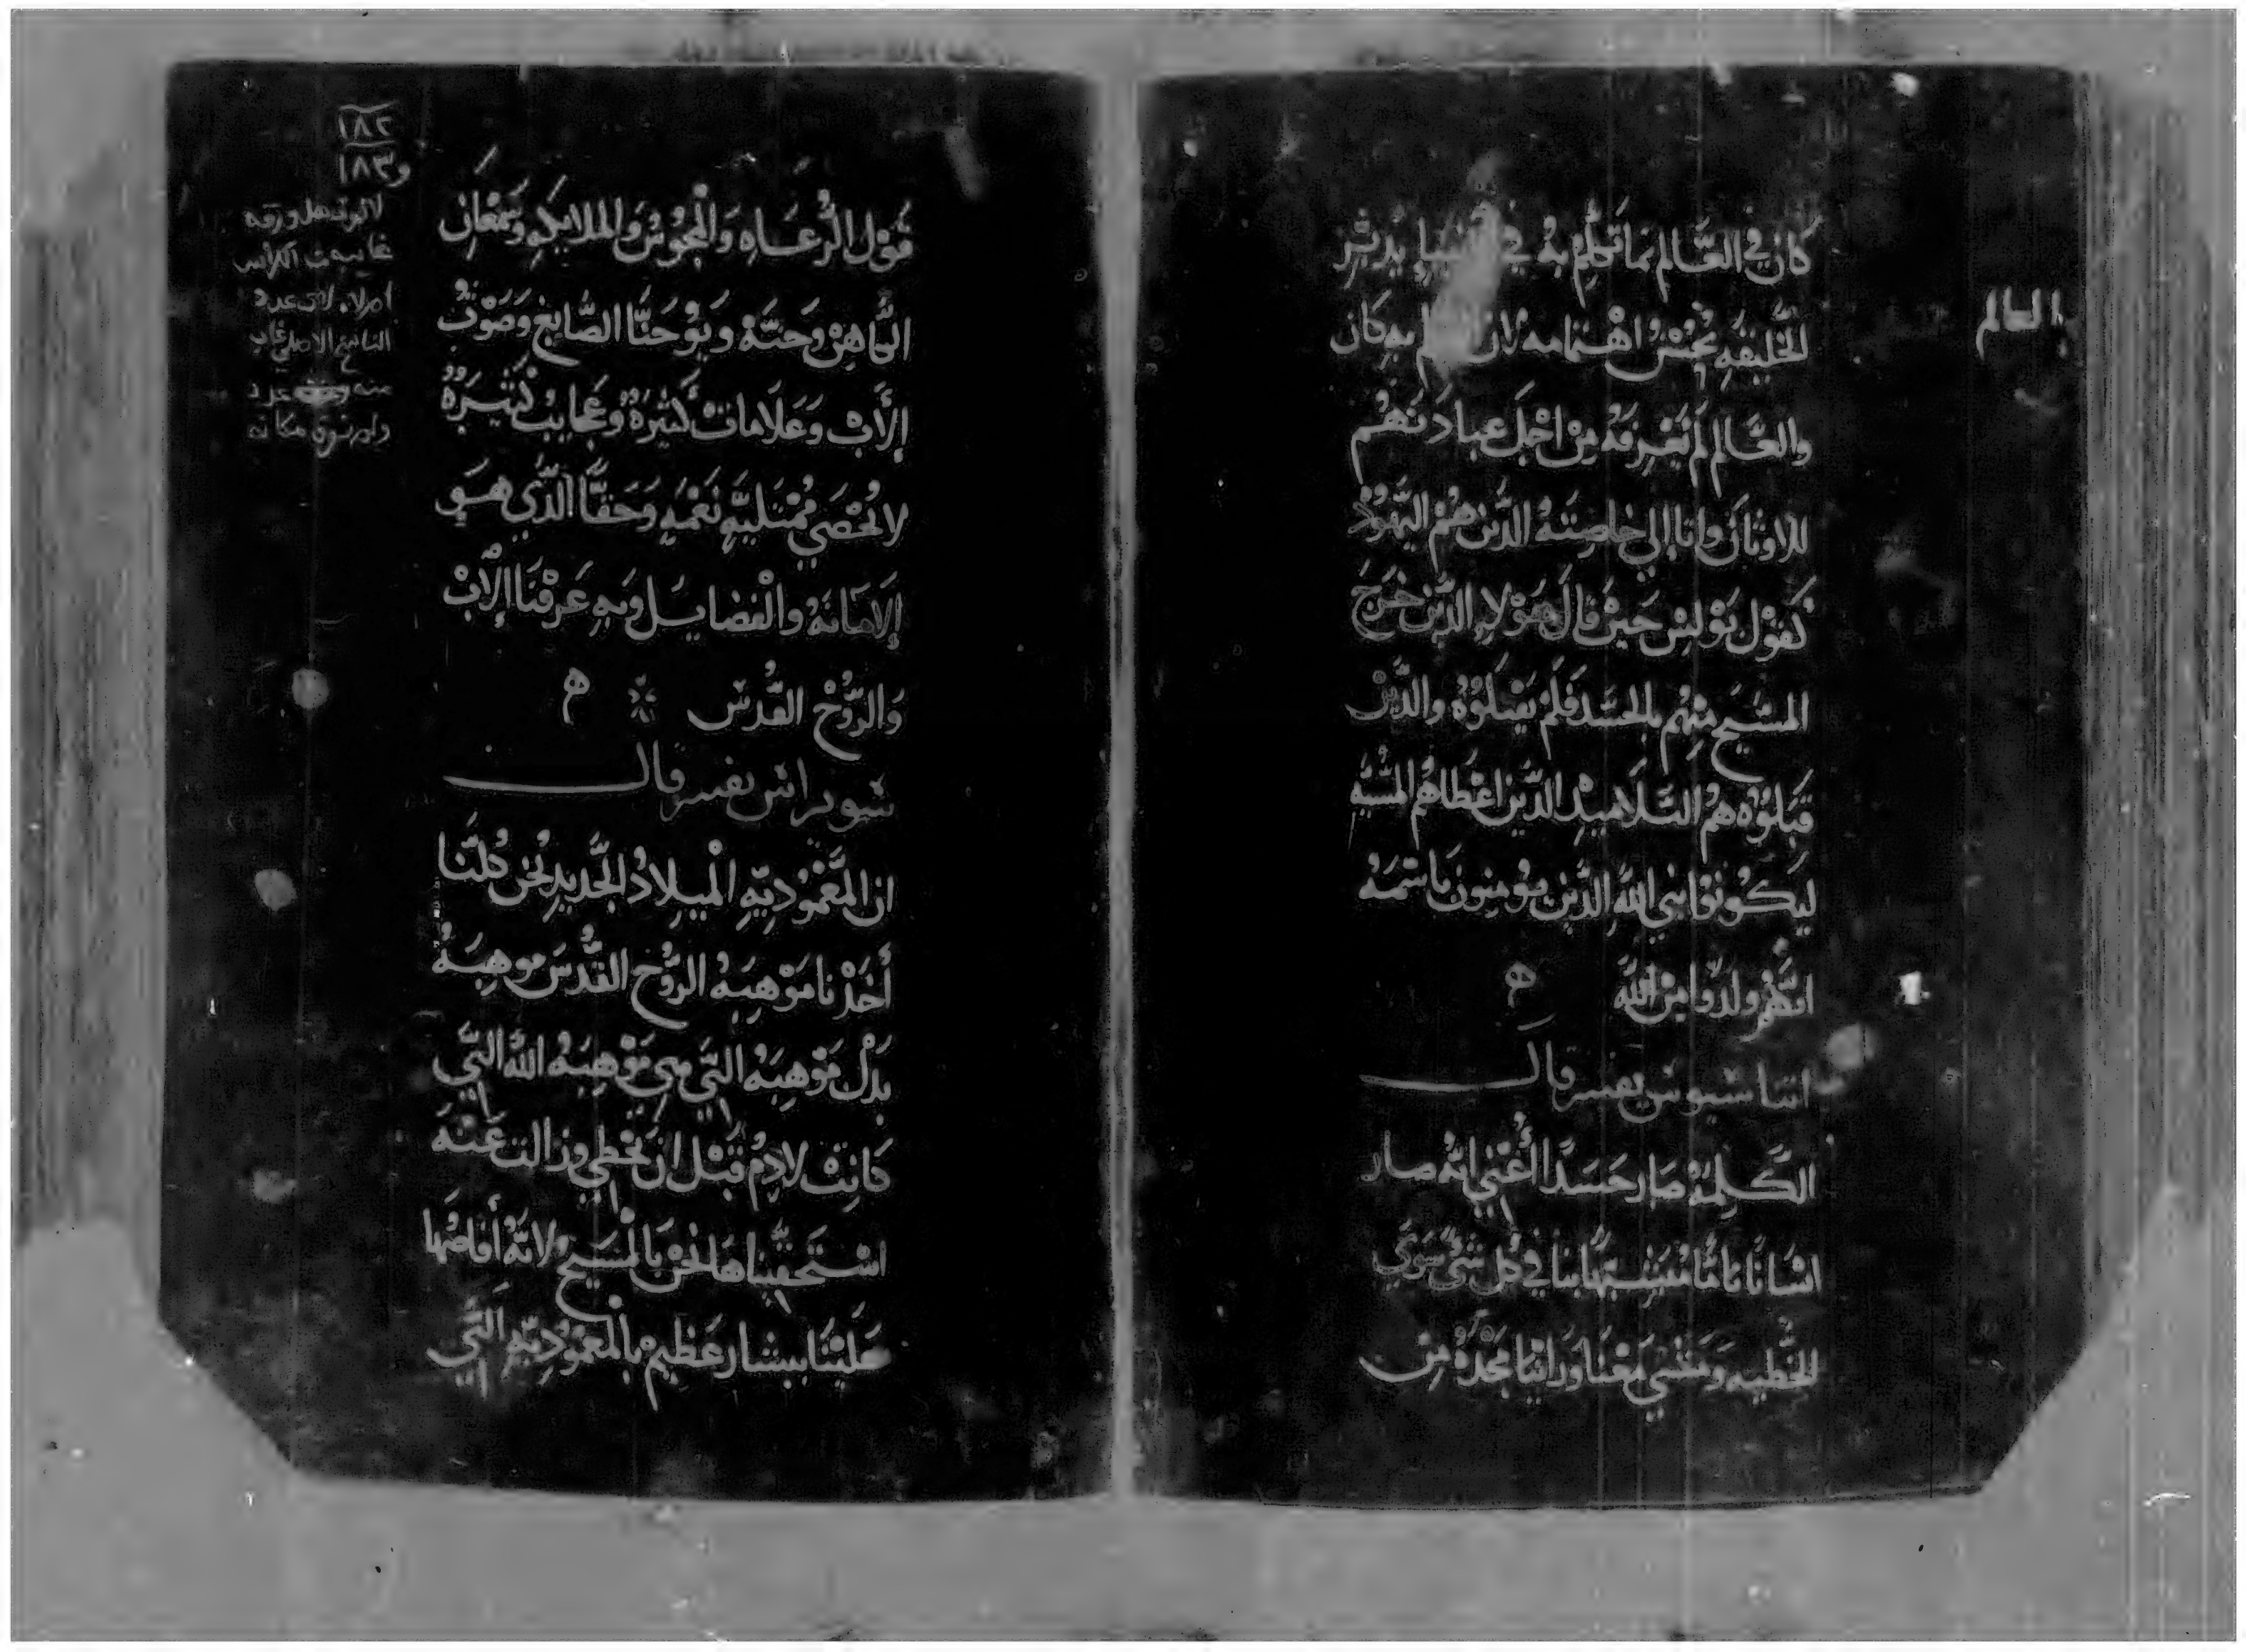 كان في العالم بما تكلم به في يدبر
الخليقه بحسن اهتمامه لان به كان
والعالم لم يعرفه من اجل عبادتهم
للاوثان واتا الي خاصته الدين هم اليهود
كقول بولس حين قال هولاء الدين خرج
المسيح منهم بالجسد فلم يقبلوه والدين
قبلوه هم التلاميد الدين اعطاهم المشيه
ليكونوا بني الله الدين يومنون باسمه
انهم ولدوا من الله
يفسر قال
الكلمة صار جسدا أعني انه صار
انسانا تاما متشبها بنا في كل شي سوي
الخطيه ومشي معنا وراينا مجده من
العالم
قول الرعاه والمجوس والملايكه وسمعان
الكاهن وحنة ويوحنا الصابغ وصوت
الأب وعلامات كثيرة وعجايب كثيرة
لا تحصي ممتليه نعمه وحقا الدي هو
الامانة والفضايل وبه عرفنا الاب
والروح القدس
يفسر قال
ان المعموديه الميلاد الجديد نحن كلنا
أخدنا موهبة الروح القدس موهبة
بدل موهبة التي هي موهبة الله التي
كانت لادم قبل ان يخطي وزالت عنه
استحقيناها نحن بالمسيح لانه أفاضها
علينا عظيم بالمعموديه التي
١٨٢
و١٨٣